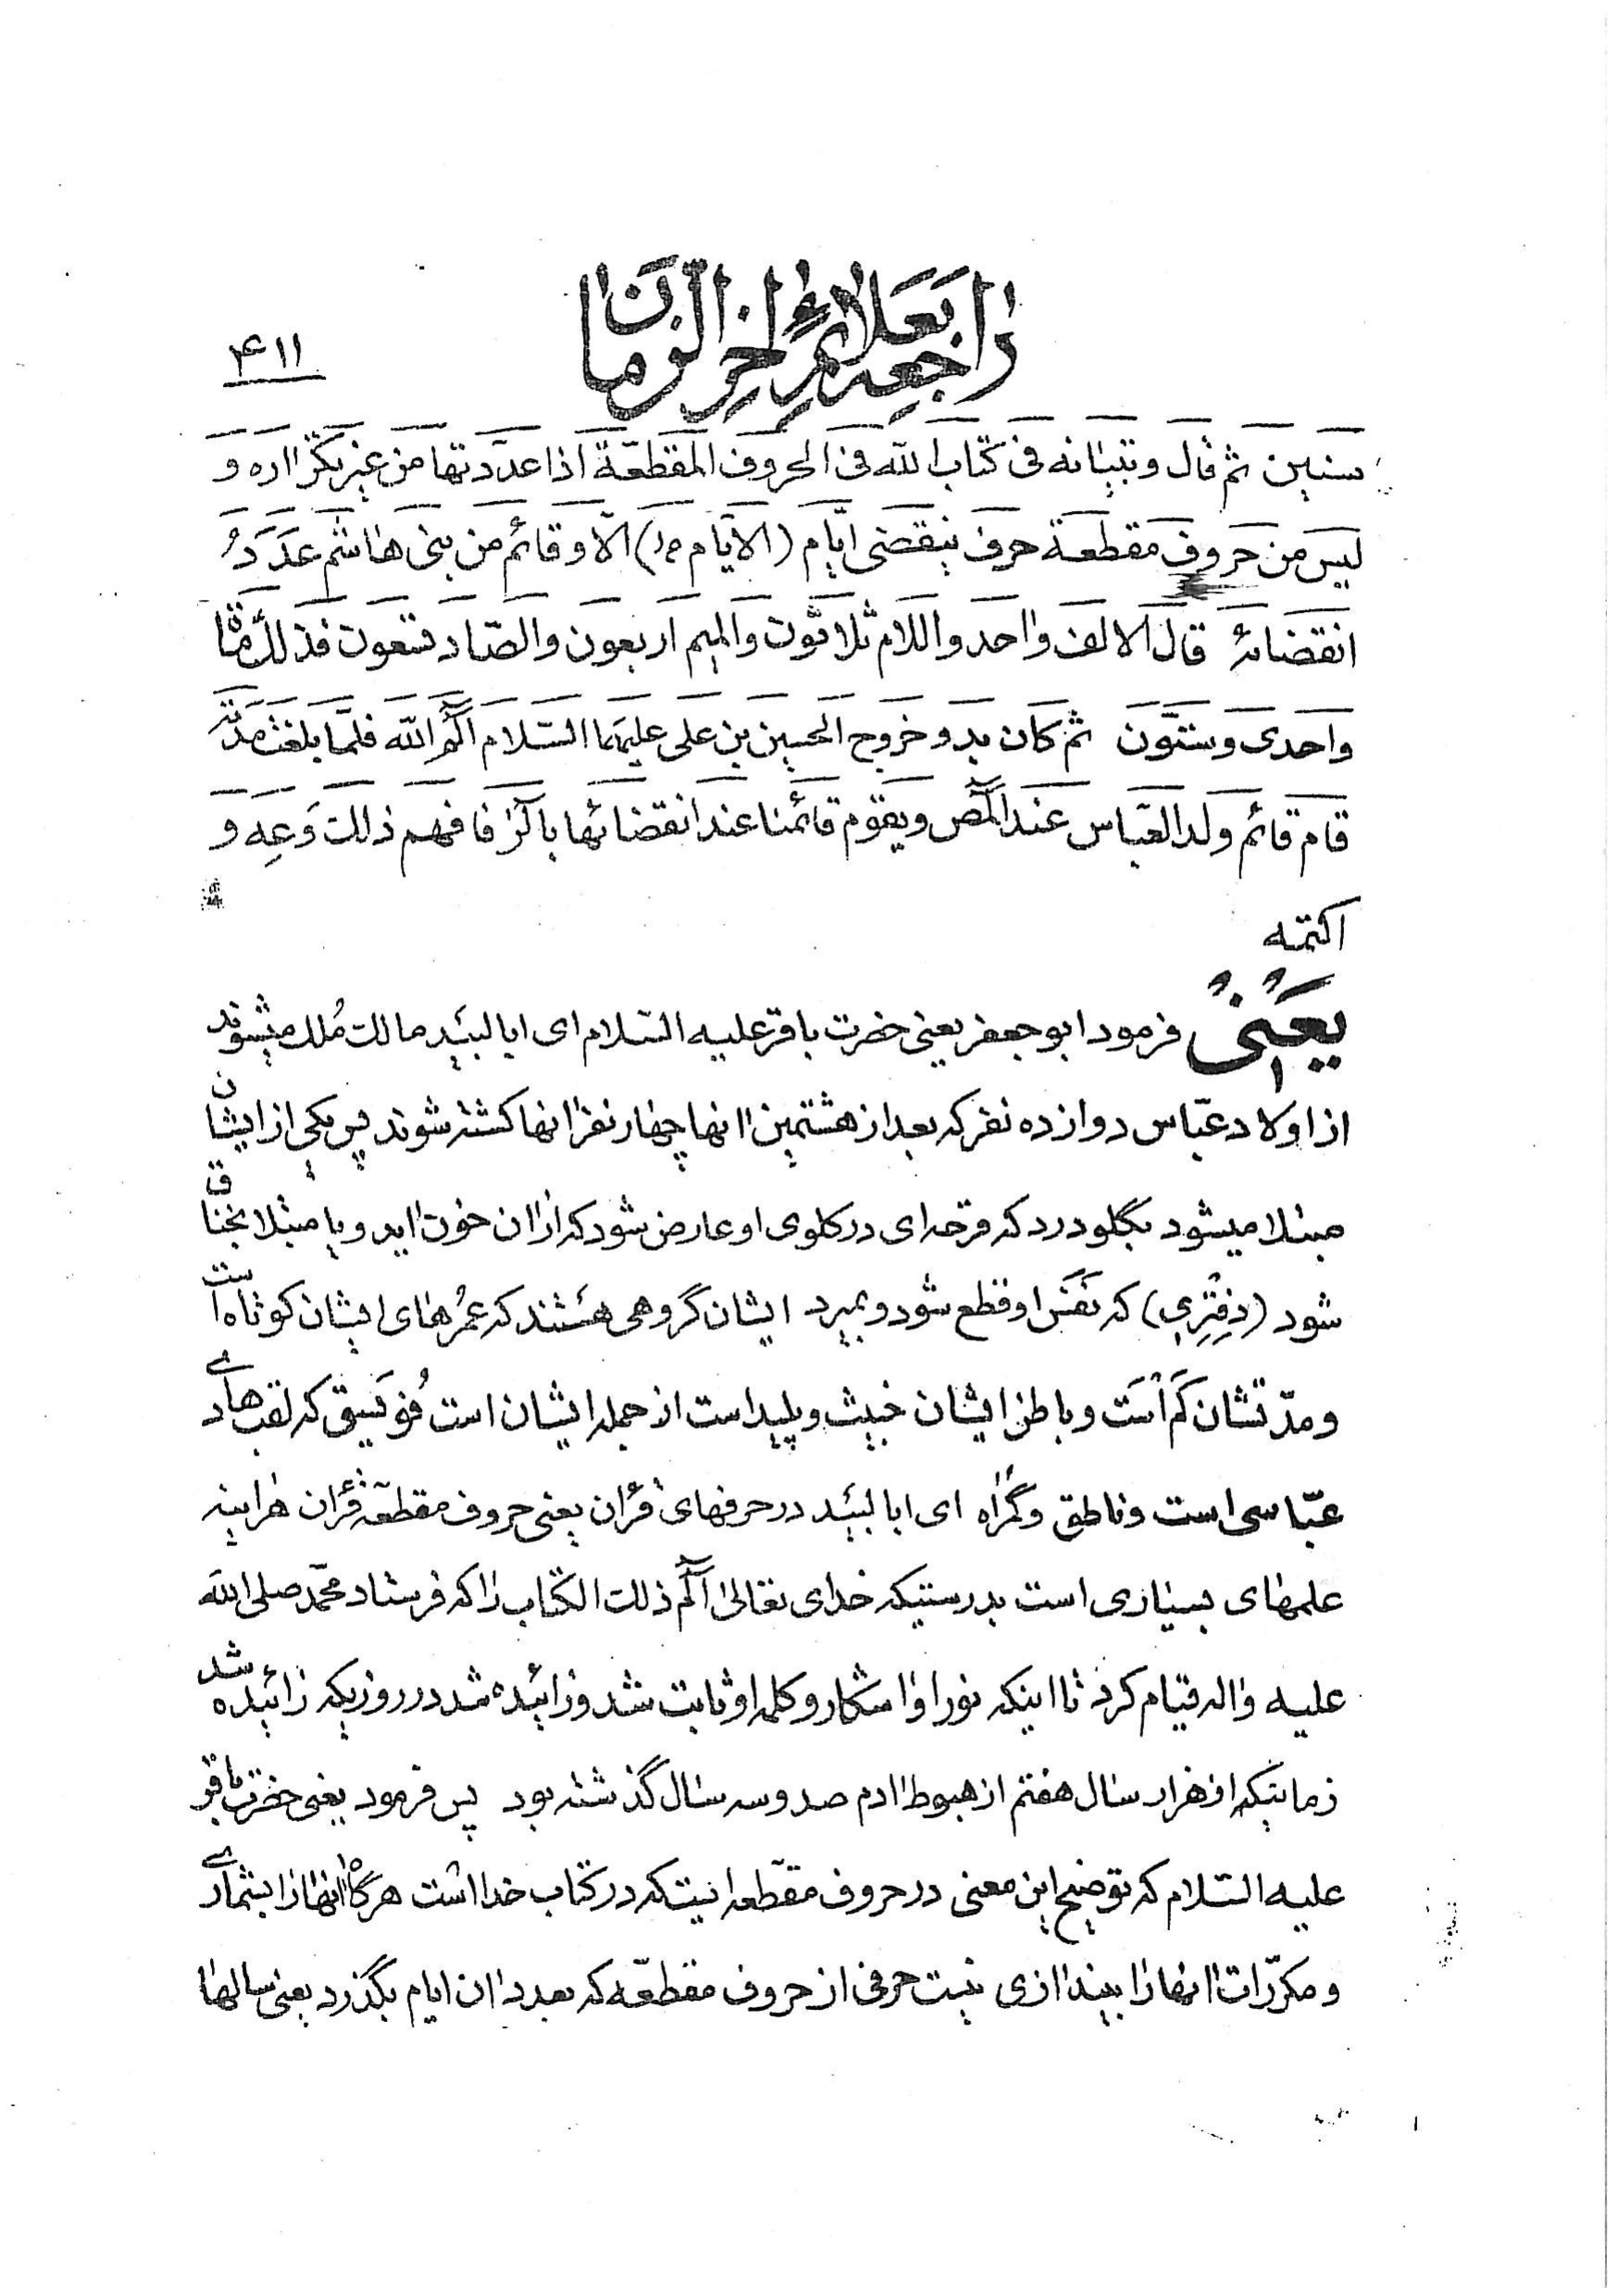 راجعه بعلائم آخر الزمان
۴۱۱
سنین ثم قال و تبیانه فی کتاب الله فی الحروف المقطعة اذا عددتها من غیر تکرار ه و
لیس من حروف مقطعة حرف ینقضی ایام (الایام ص) الا و قائم من بنی هاشم عند
انقضائه قال الالف واحد واللام ثلاثون والمیم اربعون والصاد تسعون فذلک مأة
واحدی وستون ثم کان بدو خروج الحسین بن علی علیهما السلام الم الله فلما بلغت مدته
قام قائم ولد العباس عند المص ویقوم قائمنا عند انقضائها بالر فافهم ذلک وعه و
اکتمه
یعنی فرمود ابو جعفر یعنی حضرت باقر علیه السلام ای ابا لبید مالک ملک میشوند
از اولاد عباس دوازده نفر که بعد از هشتمین انها چهار نفر انها کشته شوند پس یکی از ایشان
مبتلا میشود بگلو درد که قرحه ای در گلوی او عارض شود که از ان خون اید و یا مبتلا بخناق
شود (دفتری) که نفس او قطع شود و بمیرد ایشان گروهی هستند که عمرهای ایشان کوتاه است
و مدتشان کم است و باطن ایشان خبیث و پلید است از جمله ایشان است فویسق که لقب هادی
عباسی است و ناطق و گمراه ای ابا لبید در حرفهای قران یعنی حروف مقطعه قران هراینه
علمهای بسیاری است بدرستیکه خدای تعالی الم ذلک الکتاب را که فرستاد محمد صلی الله
علیه واله قیام کرد تا اینکه نور او اشکار و کلمه او ثابت شد و زائیده شد در روزیکه زائیده شد
زمانیکه از هزار سال هفتم از هبوط ادم صد و سه سال گذشته بود پس فرمود یعنی حضرت باقر
علیه السلام که توضیح این معنی در حروف مقطعه ایست که در کتاب خدا است هرگاه انها را بشماری
و مکررات انها را بیندازی نیست حرفی از حروف مقطعه که بعدد ان ایام بگذرد یعنی سالها